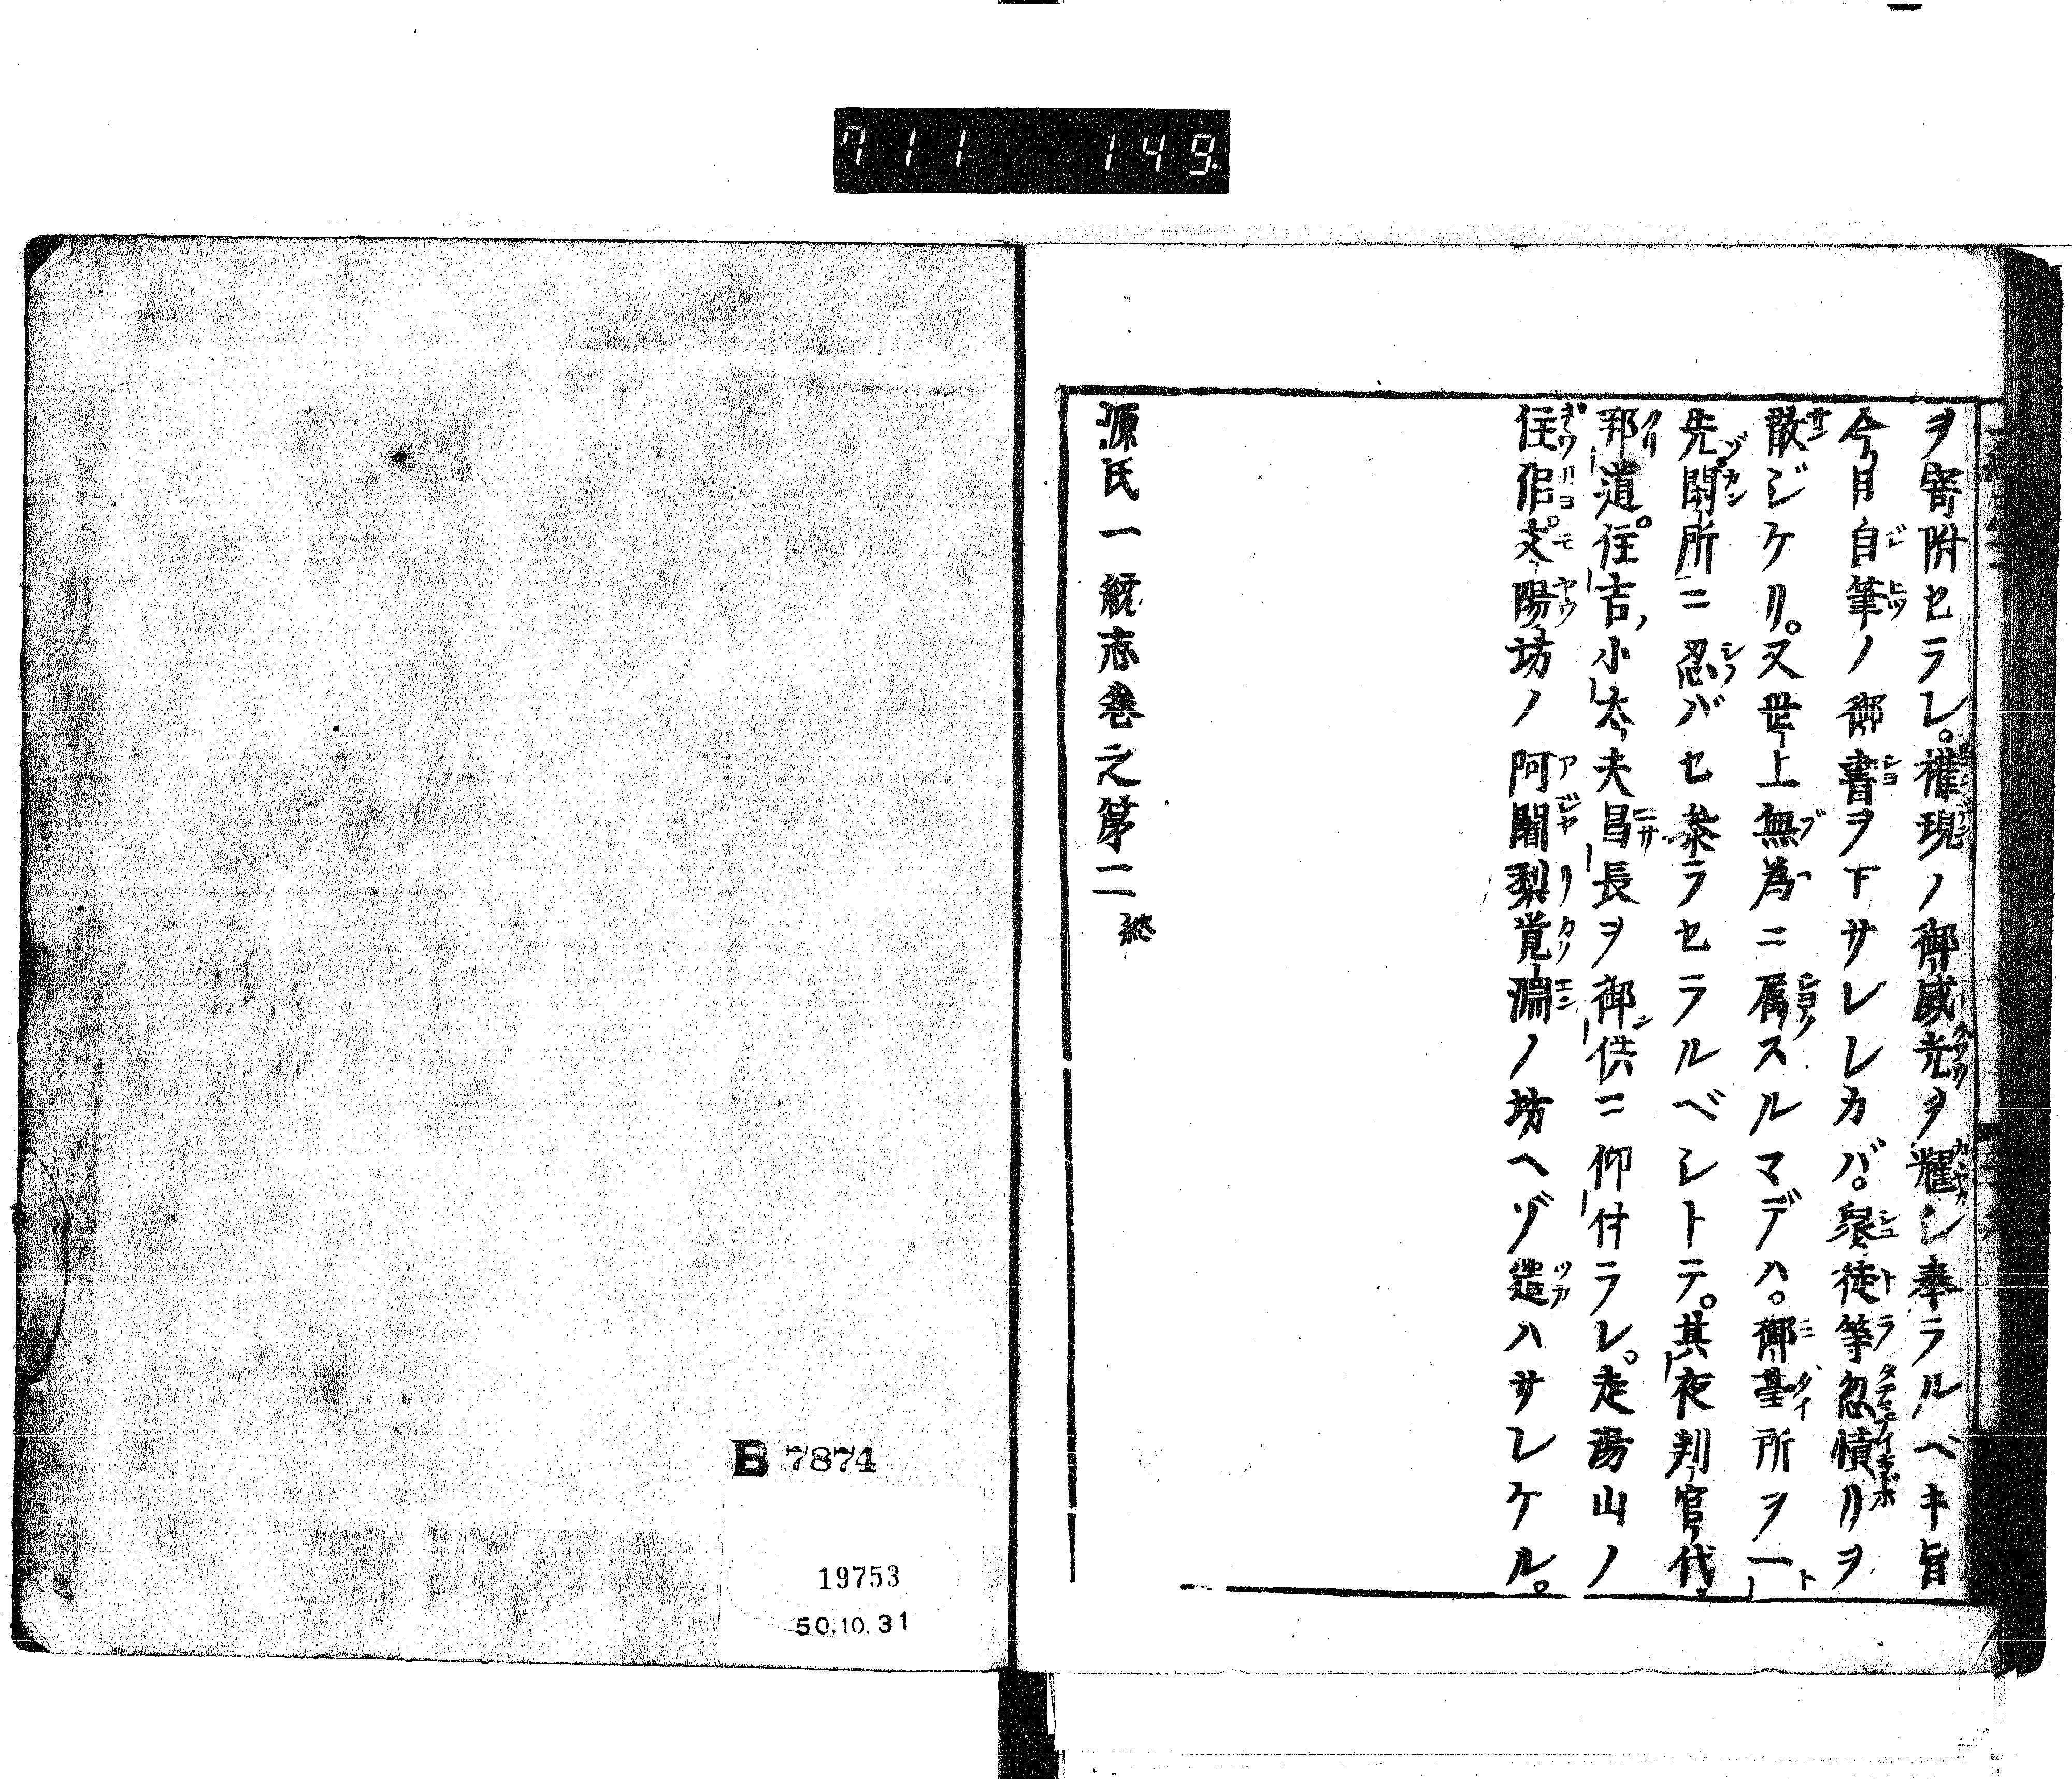 711 149
ヲ寄附セラレ。権現ノ御威光ヲ耀シ奉ラルベキ旨
今月自筆ノ御書ヲ下サレシカバ。衆徒等忽憤リヲ
散ジケリ。又世上無為ニ属スルマデハ。御臺所ヲ一
先閑所ニ忍バセ参ラセラルベシトテ。其夜判官代
邦道。住吉小大夫昌長ヲ御供ニ仰付ラレ。走湯山ノ
住侶。文陽坊ノ阿闍梨覚淵ノ坊ヘゾ遣ハサレケル。
源氏一統志巻之第二終
B 7874
19753
50.10.31